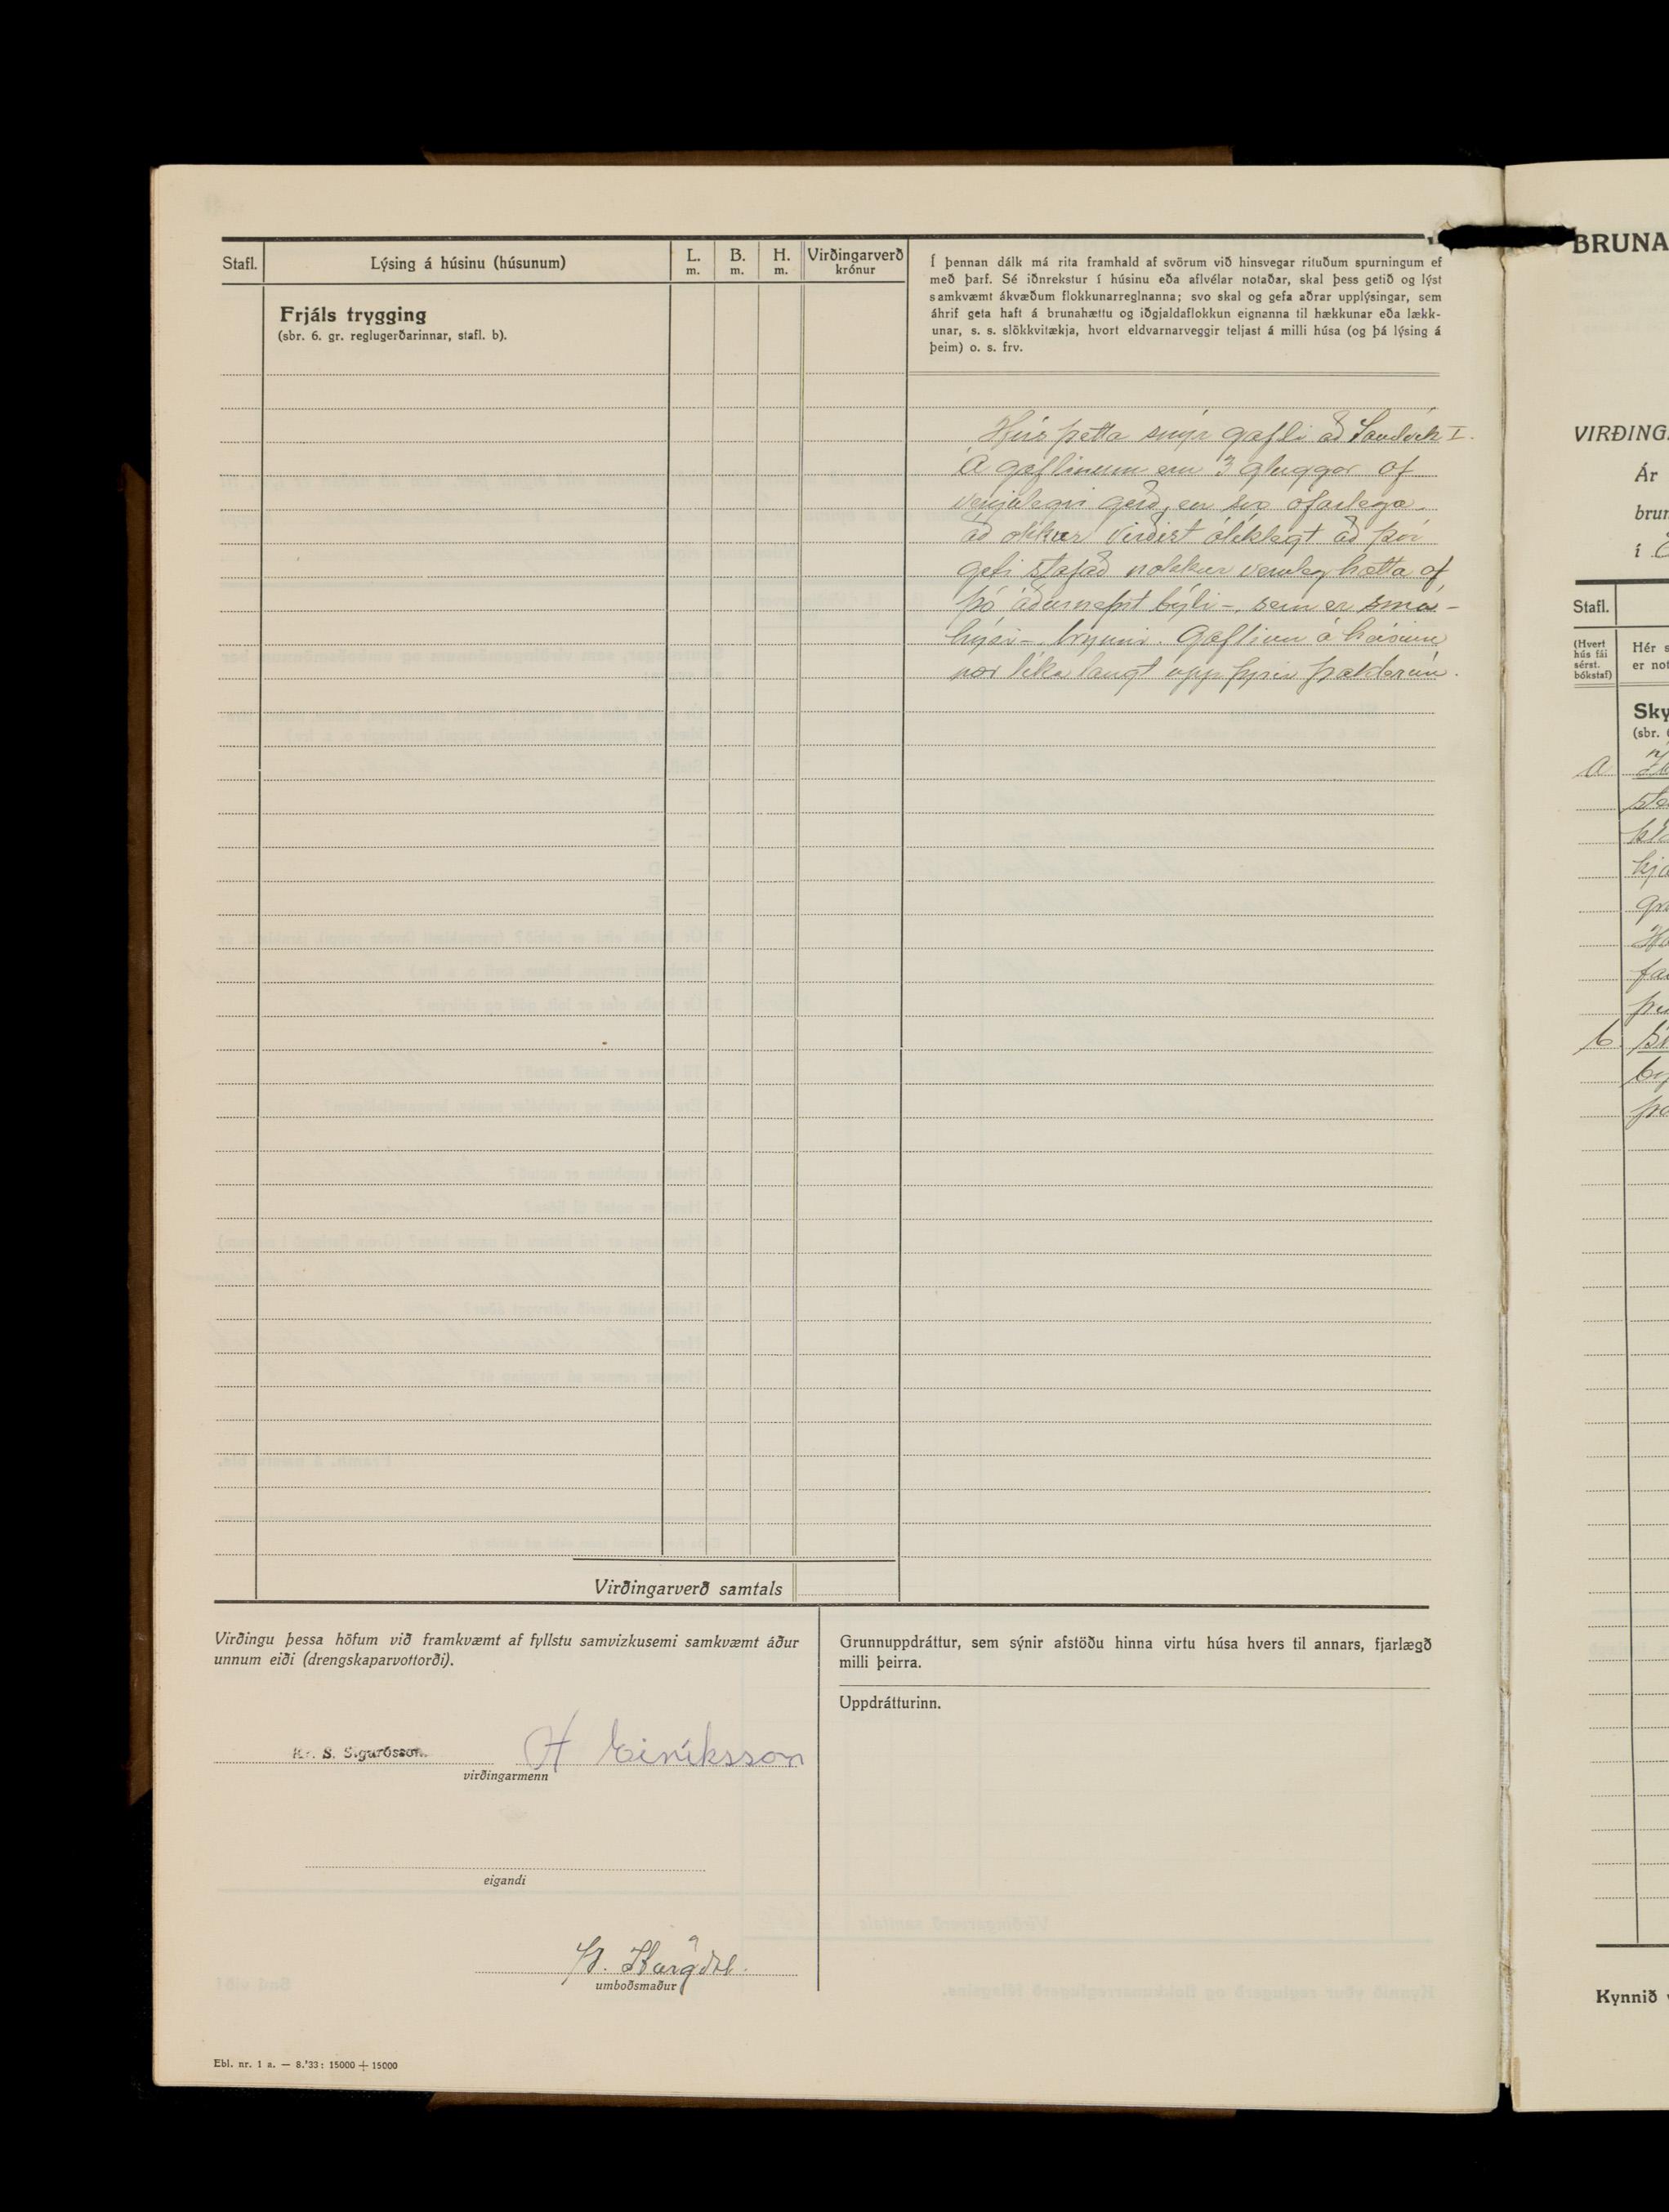 Stafl.
Lýsing á húsinu (húsunum)
L.
m.
B.
m.
H.
m.
Virðingarverð
krónur
Frjáls trygging
(sbr. 6. gr. reglugerðarinnar, stafl. b).
Í þennan dálk má rita framhald af svörum við hinsvegar rituðum spurningum ef
með þarf. Sé iðnrekstur í húsinu eða aflvélar notaðar, skal þess getið og lýst
samkvæmt ákvæðum flokkunarreglnanna; svo skal og gefa aðrar upplýsingar, sem
áhrif geta haft á brunahættu og iðgjaldaflokkun eignanna til hækkunar eða lækk-
unar, s. s. slökkvitækja, hvort eldvarnarveggir teljast á milli húsa (og þá lýsing á
þeim) o. s. frv.
Hús þetta snýr gafli að Sandvík I.
Á gaflinum eru 3 gluggar af
venjulegri gerð, en svo ofarlega
að okkur virðist ólíklegt að þar
geti stafað nokkur veruleg hætta af
þó áðurnefnt býli -, sem er smá -
hýsi - brynni. Gaflinn á húsinu
nær líka langt upp fyrir þakbrún.
Virðingarverð samtals
Virðingu þessa höfum við framkvæmt af fyllstu samvizkusemi samkvæmt áður
unnum eiði (drengskaparvottorði).
Kr. S. Sigurðsson.
H Eiríksson
virðingarmenn
eigandi
umboðsmaður
Grunnuppdráttur, sem sýnir afstöðu hinna virtu húsa hvers til annars, fjarlægð
milli þeirra.
Uppdrátturinn.
Ebl. nr. 1 a. — 8.'33: 15000 + 15000
BRUNA
VIRÐING
Ár
brun
í
Stafl.
(Hvert
hús fái
sérst.
bókstaf)
Hér s
er not
Sky
(sbr.
a
b
Kynnið